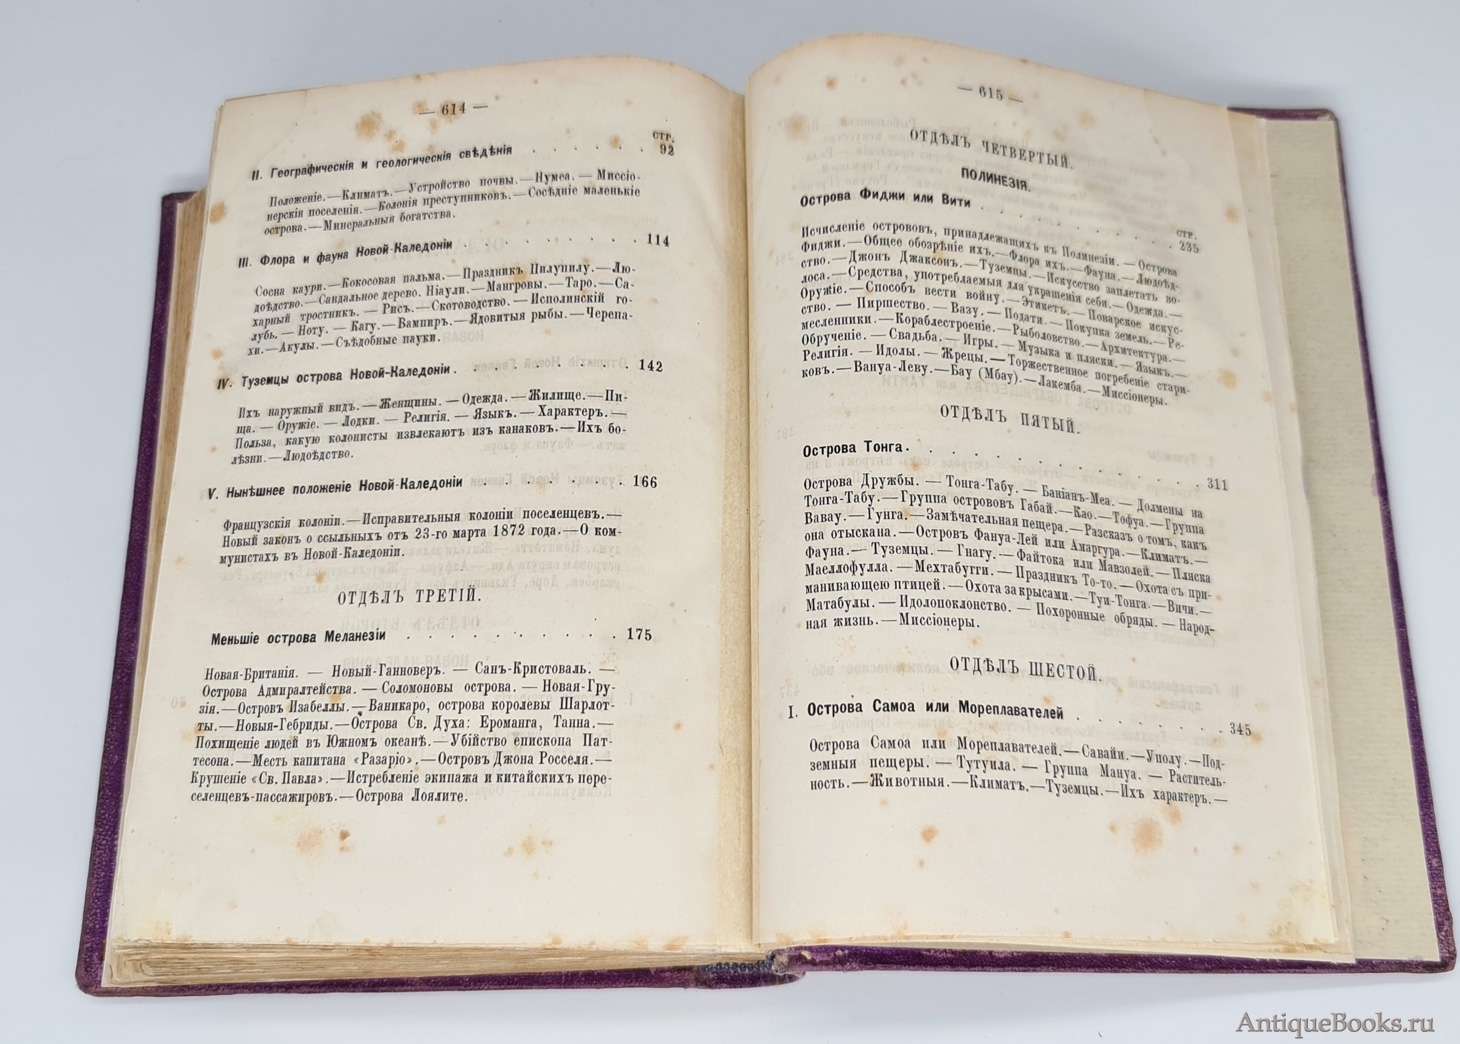 — 614 —
стр.
II. Географическія и геологическія свѣдѣнія . . . . . . . 92
Положеніе.—Климатъ.—Устройство почвы.—Нумеа.—Миссіо-
нерскія поселенія.—Колонія преступниковъ.—Сосѣдніе маленькіе
острова.—Минеральныя богатства.
III. Флора и фауна Новой-Каледоніи . . . . . . . . . . 114
Сосна каури.—Кокосовая пальма.—Праздникъ Пилупилу.—Лю-
доѣдство.—Сандальное дерево. Ніаули.—Мангровы.—Таро.—Са-
харный тростникъ. — Рисъ.—Скотоводство.—Исполинскій го-
лубь. — Ноту. — Кагу.—Вампиръ.—Ядовитыя рыбы.—Черепа-
хи.—Акулы.—Съѣдобные пауки.
IV. Туземцы острова Новой-Каледоніи. . . . . . . . . . 142
Ихъ наружный видъ.—Женщины.—Одежда.—Жилище.—Пи-
ща. — Оружіе. — Лодки. — Религія. — Языкъ. — Характеръ. —
Польза, какую колонисты извлекаютъ изъ канаковъ.—Ихъ бо-
лѣзни.—Людоѣдство.
V. Нынѣшнее положеніе Новой-Каледоніи . . . . . . . . 166
Французскія колоніи.—Исправительныя колоніи поселенцевъ.—
Новый законъ о ссыльныхъ отъ 23-го марта 1872 года.—О ком-
мунистахъ въ Новой-Каледоніи.
ОТДѢЛЪ ТРЕТІЙ.
Меньшіе острова Меланезіи . . . . . . . . . . . . 175
Новая-Британія. — Новый-Ганноверъ. — Санъ-Кристоваль. —
Острова Адмиралтейства. — Соломоновы острова. — Новая-Гру-
зія.—Островъ Изабеллы.—Ваникаро, острова королевы Шарлот-
ты.—Новыя-Гебриды.—Острова Св. Духа: Ероманга, Танна.—
Похищеніе людей въ Южномъ океанѣ.—Убійство епископа Пат-
тесона.—Месть капитана «Разаріо».—Островъ Джона Росселя.—
Крушеніе «Св. Павла».—Истребленіе экипажа и китайскихъ пере-
селенцевъ-пассажировъ.—Острова Лоялите.
— 615 —
ОТДѢЛЪ ЧЕТВЕРТЫЙ.
ПОЛИНЕЗІЯ.
стр.
Острова Фиджи или Вити . . . . . . . . . . . . 235
Исчисленіе острововъ, принадлежащихъ къ Полинезіи. — Острова
Фиджи.—Общее обозрѣніе ихъ.—Флора ихъ.—Фауна.—Людоѣд-
ство.—Джонъ Джаксонъ.—Туземцы.—Искусство заплетать во-
лоса.—Средства, употребляемыя для украшенія себя.—Одежда.—
Оружіе.—Способъ вести войну.—Этикетъ.—Поварское искус-
ство. — Пиршество. — Вазу. — Подати. — Покупка земель. — Ре-
месленники.—Кораблестроеніе.—Рыболовство.—Архитектура.—
Обрученіе. — Свадьба. — Игры. — Музыка и пляски. — Языкъ.—
Религія. — Идолы. — Жрецы. — Торжественное погребеніе стари-
ковъ.—Вануа-Леву.—Бау (Мбау).—Лакемба.—Миссіонеры.
ОТДѢЛЪ ПЯТЫЙ.
Острова Тонга. . . . . . . . . . . . . . . 311
Острова Дружбы. — Тонга-Табу. — Баніанъ-Меа. — Долмены на
Тонга-Табу.—Группа острововъ Габай.—Као.—Тофуа.—Группа
Вавау.—Гунга.—Замѣчательная пещера.—Разсказъ о томъ, какъ
она отыскана.—Островъ Фануа-Лей или Амаргура.—Климатъ.—
Фауна.— Туземцы. — Гнагу. — Файтока или Мавзолей. — Пляска
Маеллофулла. — Мехтабугги. — Праздникъ То-то. — Охота съ при-
манивающею птицей.—Охота за крысами.—Туи-Тонга.—Вичи.—
Матабулы. — Идолопоклонство. — Похоронные обряды. — Народ-
ная жизнь.—Миссіонеры.
ОТДѢЛЪ ШЕСТОЙ.
I. Острова Самоа или Мореплавателей . . . . . . . . 345
Острова Самоа или Мореплавателей.—Савайи.—Уполу.—Под-
земныя пещеры. — Тутуила. — Группа Мануа. — Раститель-
ность. — Животныя. — Климатъ.—Туземцы.—Ихъ характеръ.—
AntiqueBooks.ru